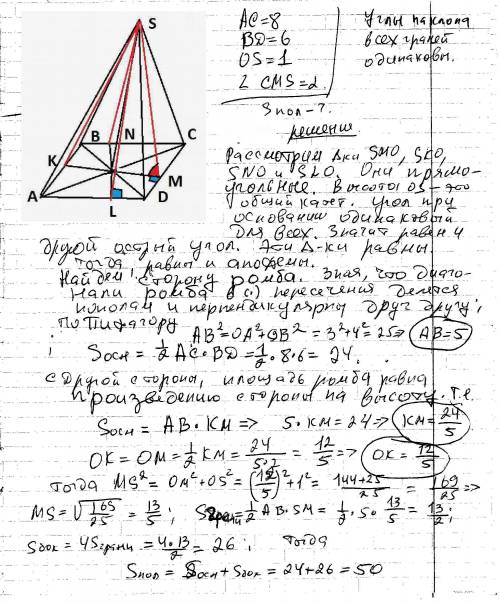 S
B
N
C
K
M
A
L
D
AC=8
BD=6
OS=1
∠ CMS=α.
Sпол-?
Углы наклона
всех граней
одинаковы.
решение
Рассмотрим Δки SMO, SKO,
SNO и SLO. Они прямо-
угольные. Высота OS - это
общий катет. Угол при
основании одинаковый
для всех. Значит равен и
другой острый угол. Эти Δ-ки равны.
Тогда равны и апофемы.
Найдем сторону ромба. Зная, что диаго-
нали ромба в (·) пересечения делятся
пополам и перпендикулярны друг другу,
по Пифагору
AB²=OA²+OB²=3²+4²=25=> AB=5
; Sосн=1/2 AC·BD=1/2·8·6=24.
С другой стороны, площадь ромба равна
произведению стороны на высоту. Т.е.
Sосн = AB·KM=> 5·KM=24=> KM=24/5
OK=OM=1/2 KM=24/5·2=12/5=> OK=12/5
Тогда MS²=OM²+OS²=(12/5)²+1²=144+25/25=169/25=>
MS=√169/25=13/5; Sграни=1/2 AB·SM=1/2·5·13/5=13/2;
Sбок=4Sграни=4·13/2=26; Тогда
Sпол=Sосн+Sбок=24+26=50